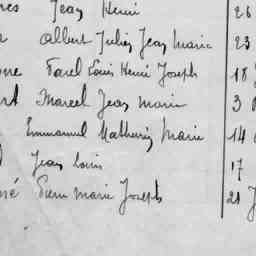 Jean Henri 26
Albert Julien Jean Marie 23
Louis Henri Joseph 18
Marcel Jean Marie 3
Emmanuel Mathurin Marie 14
Jean Louis 17
Pierre Marie Joseph 21 J